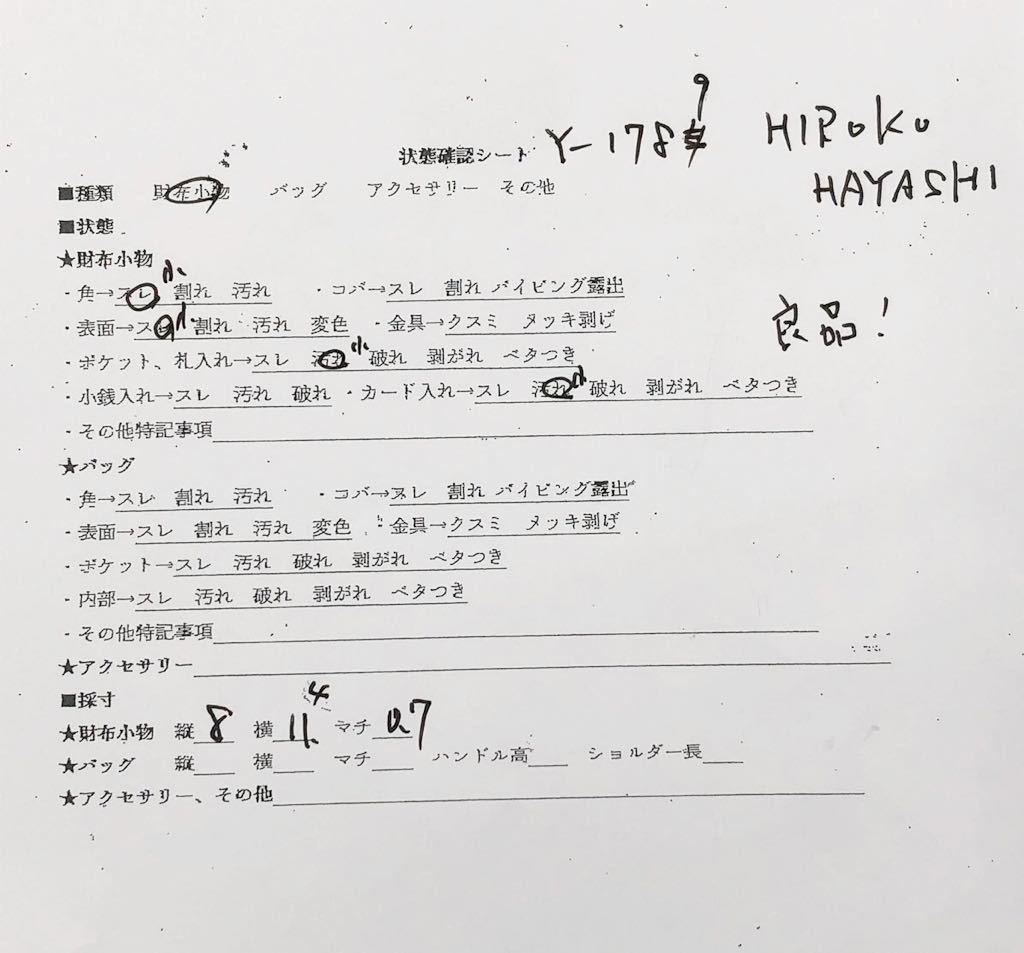 状態確認シート Y-1789 HIROKO
HAYASHI
■種類 財布小物 バッグ アクセサリー その他
■状態
★財布小物
・角→スレ小 割れ 汚れ ・コバ→スレ 割れ パイピング露出
良品!
・表面→スレ小 割れ 汚れ 変色 ・金具→クスミ メッキ剥げ
・ポケット、札入れ→スレ 汚れ小 破れ 剥がれ ベタつき
・小銭入れ→スレ 汚れ 破れ ・カード入れ→スレ 汚れ小 破れ 剥がれ ベタつき
・その他特記事項
★バッグ
・角→スレ 割れ 汚れ ・コバ→スレ 割れ パイピング露出
・表面→スレ 割れ 汚れ 変色 ・金具→クスミ メッキ剥げ
・ポケット→スレ 汚れ 破れ 剥がれ ベタつき
・内部→スレ 汚れ 破れ 剥がれ ベタつき
・その他特記事項
★アクセサリー
■採寸
★財布小物 縦 8 横 11.4 マチ 0.7
★バッグ 縦 横 マチ ハンドル高 ショルダー長
★アクセサリー、その他